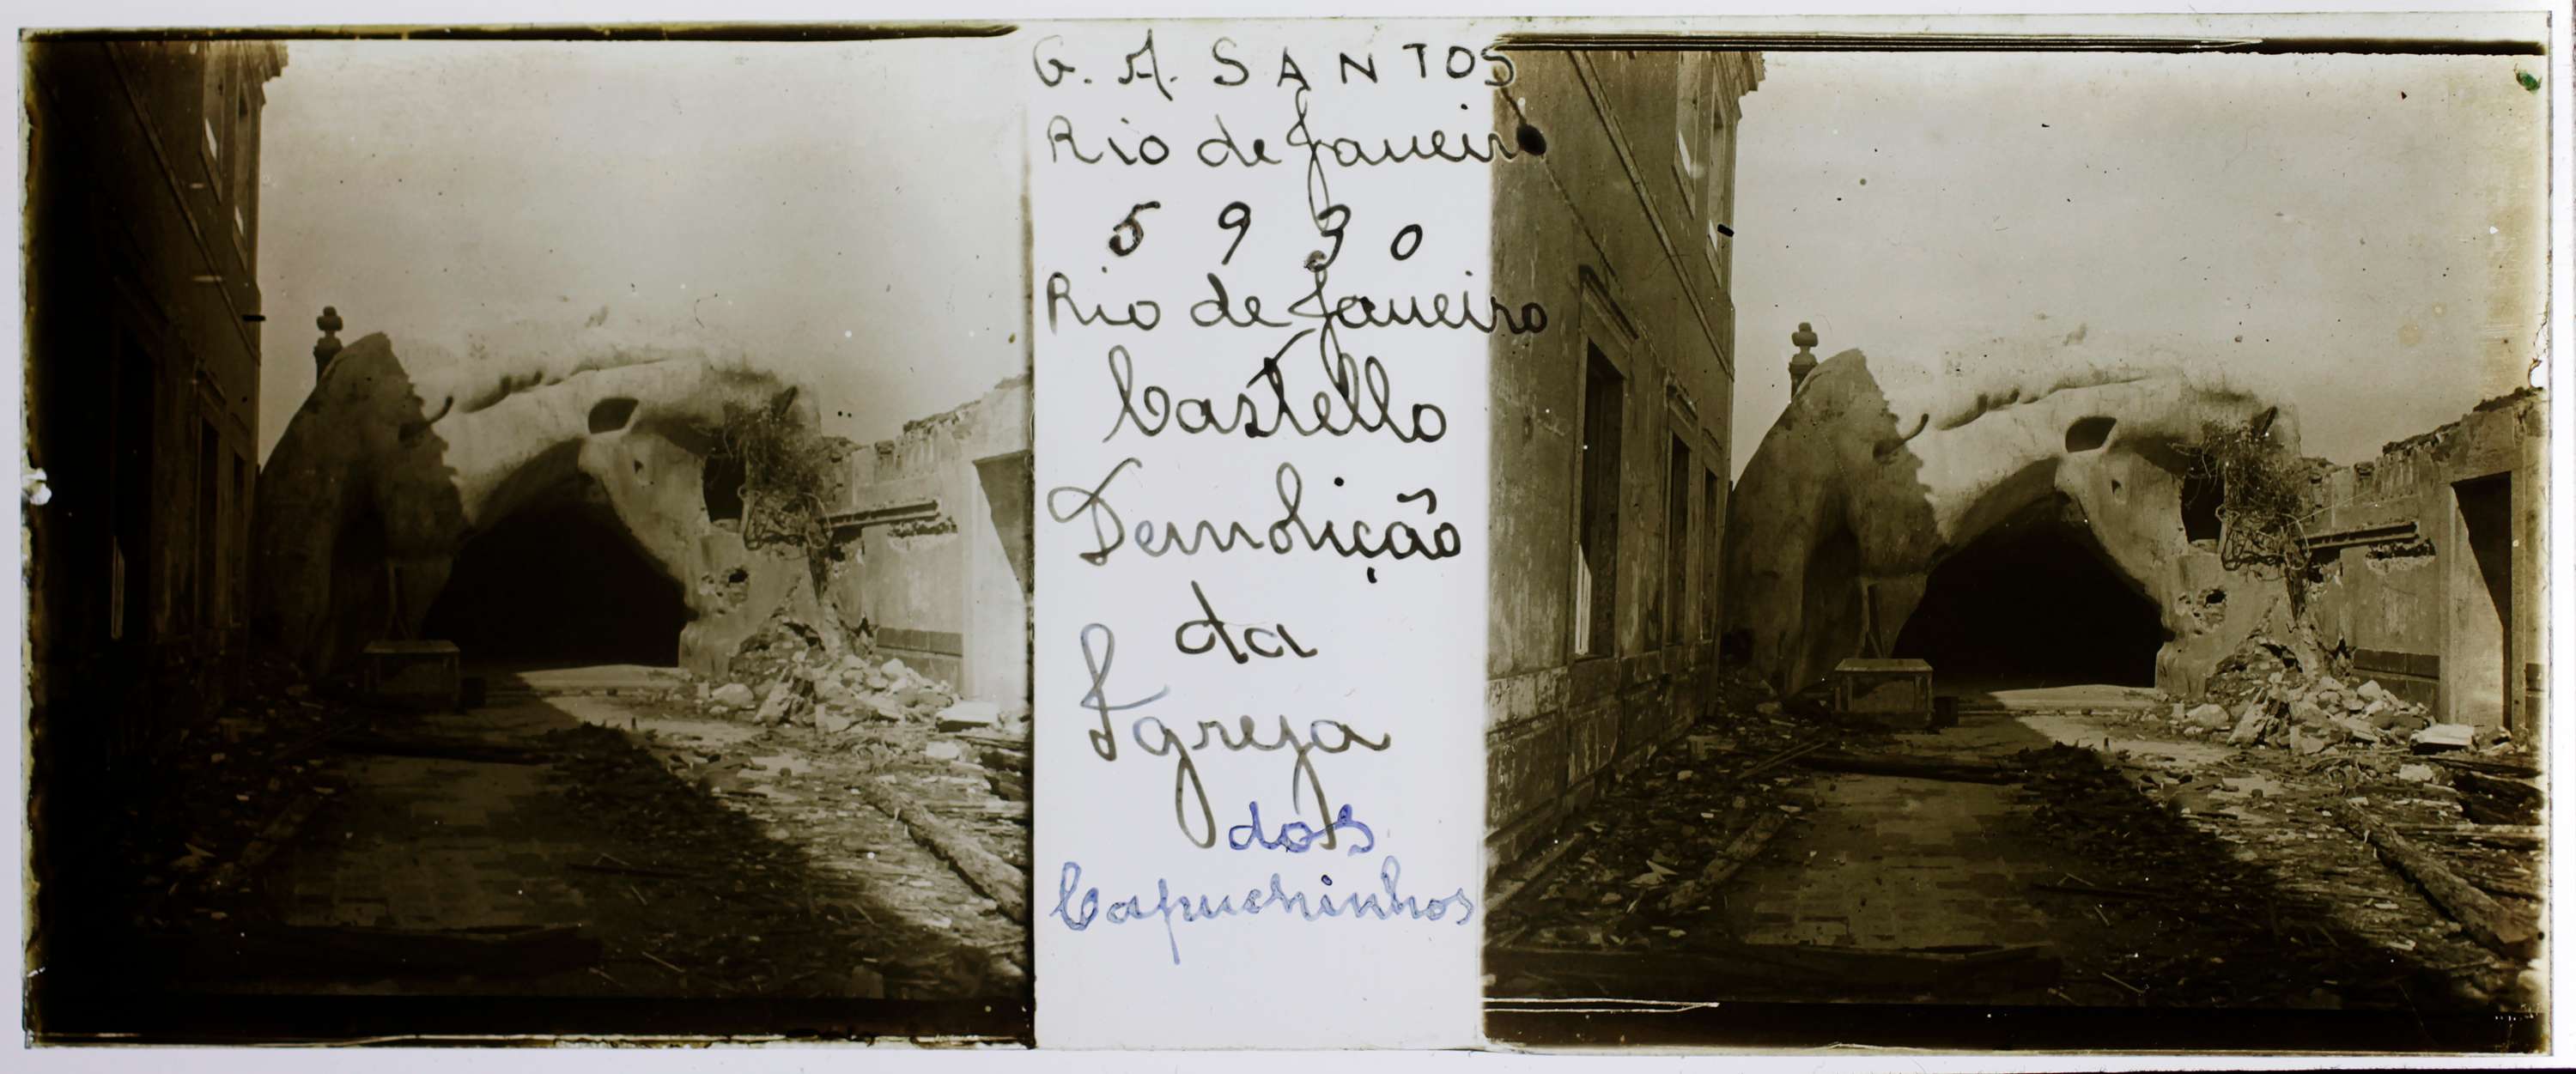 G. A. SANTOS
Rio de Janeiro
5930
Rio de Janeiro
Castello
Demolição
da
Igreja
dos
Capuchinhos